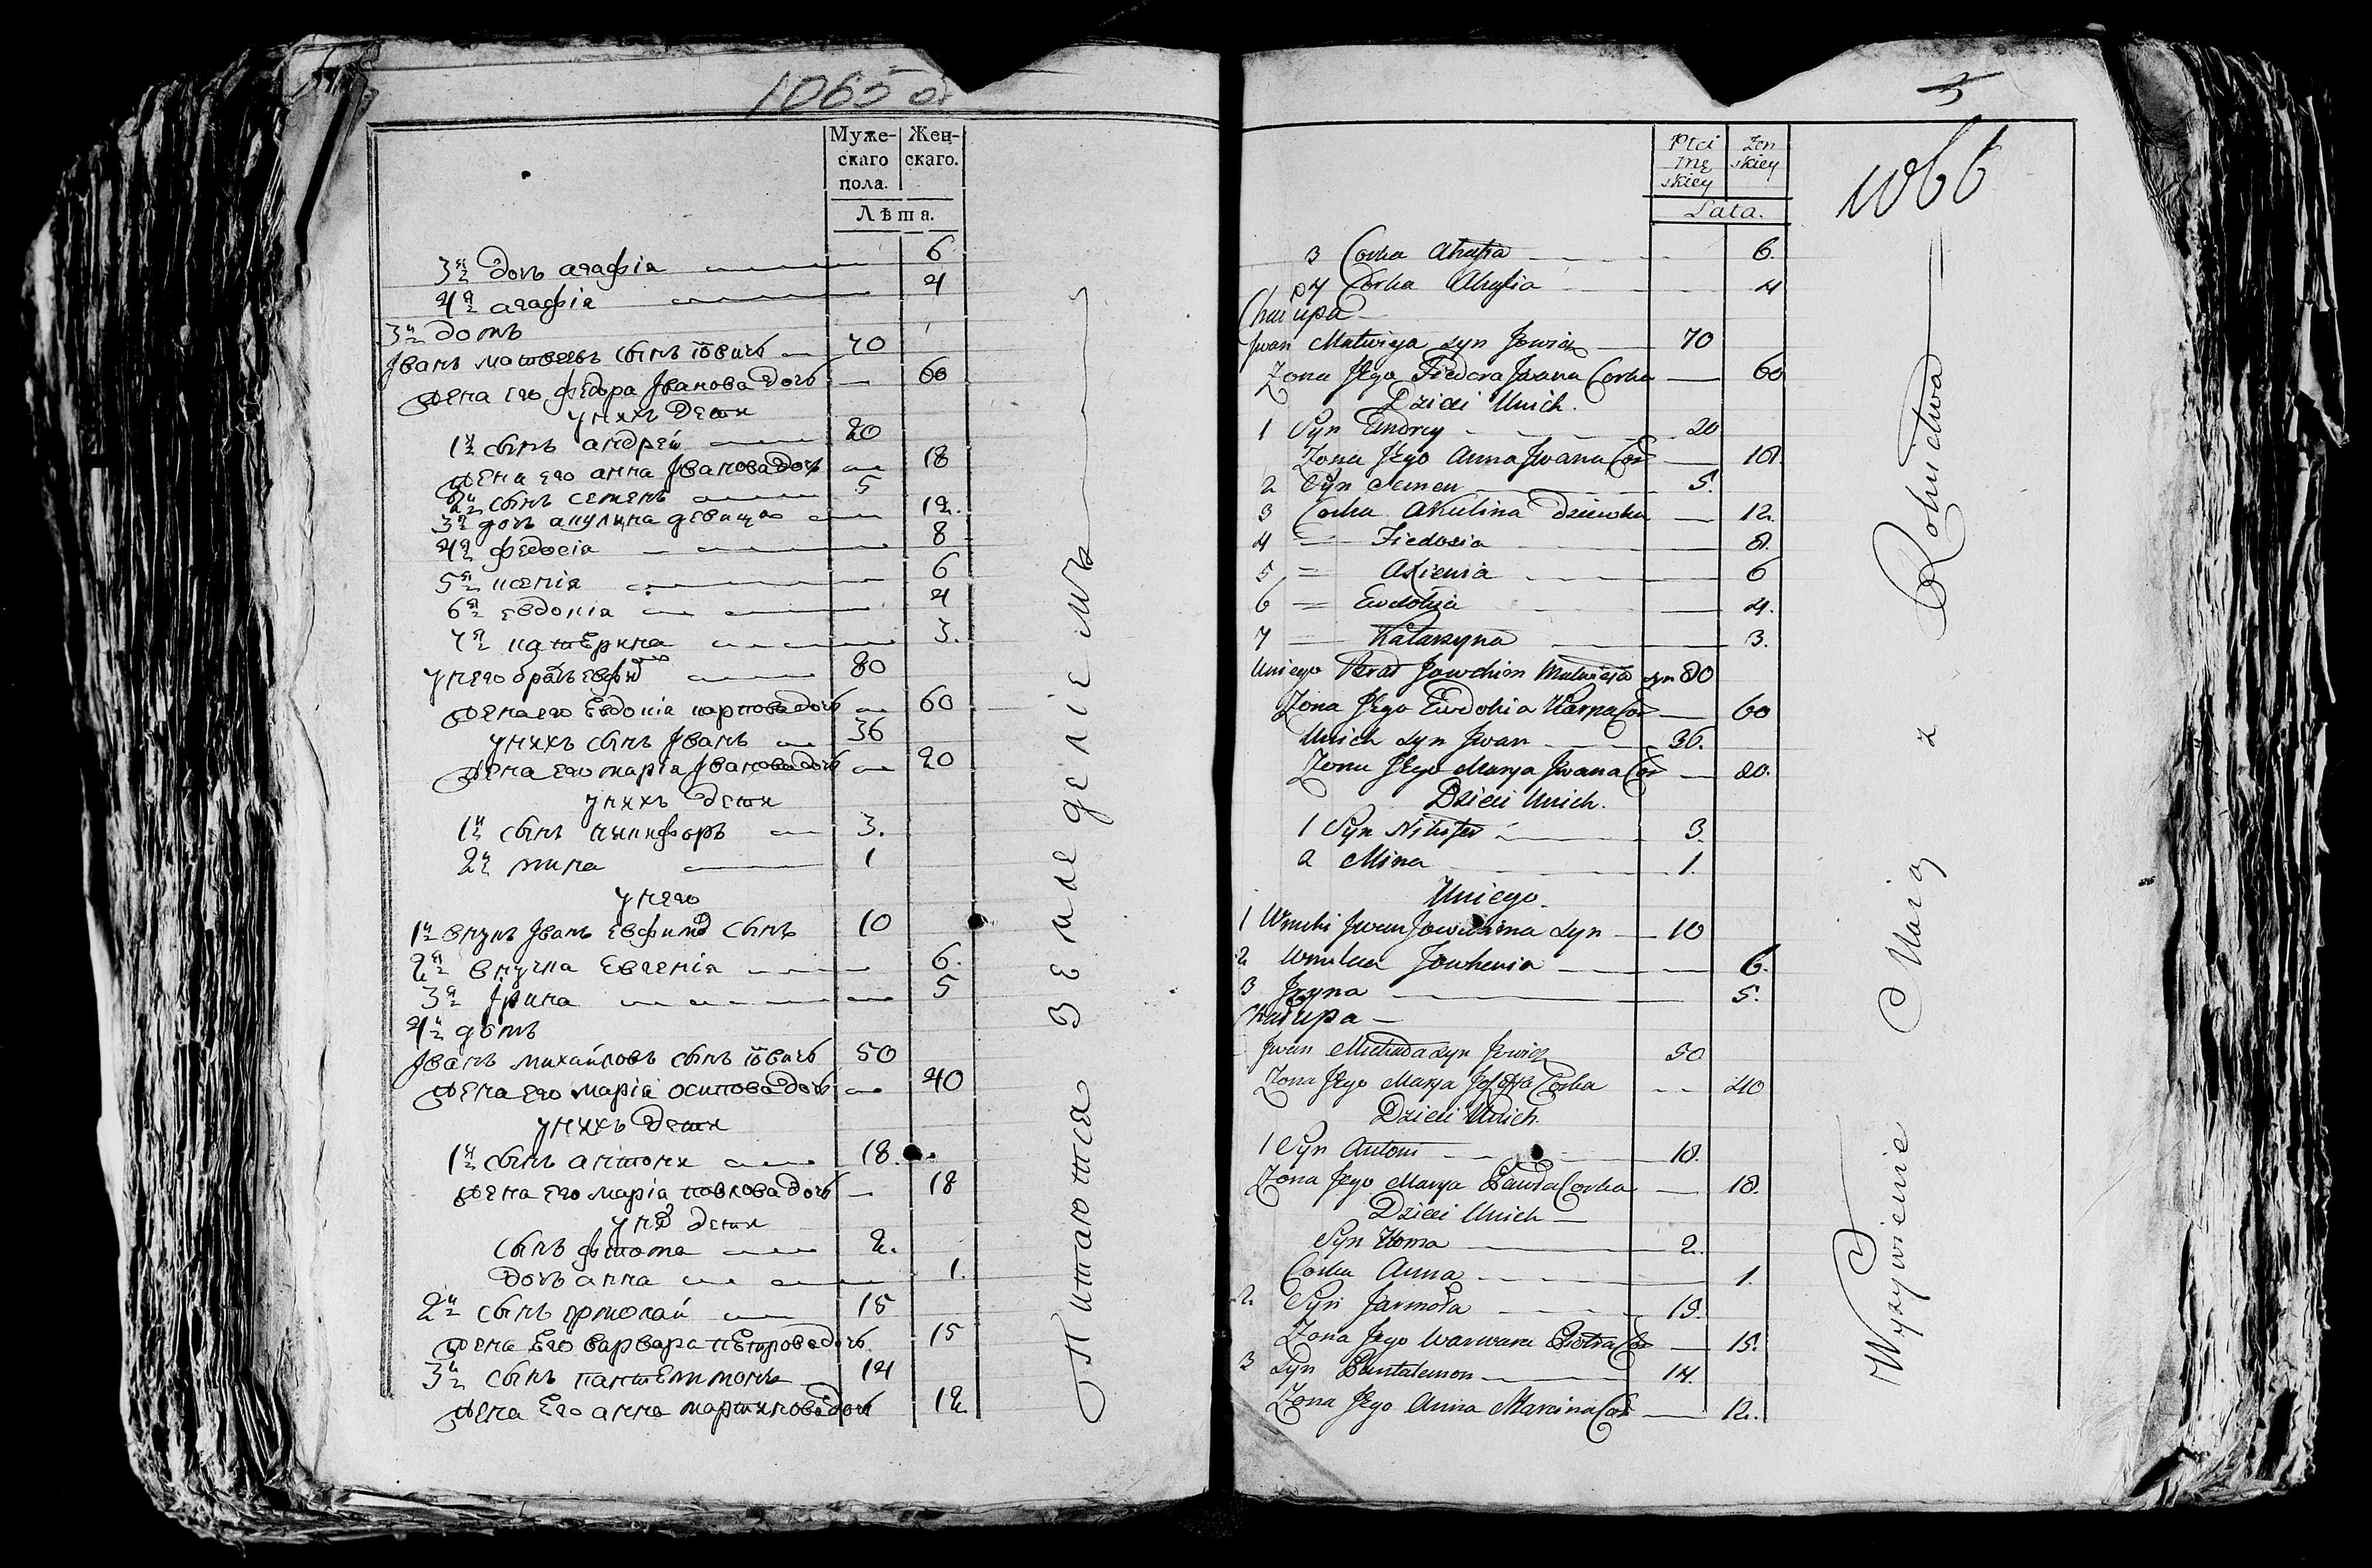 1065 об
Муже-
скаго
пола.
Жен-
скаго.
Лѣта.
3я дочь агафiя 6
4я агафiя 4
3й домъ
Іванъ матвеевъ сынъ Іовичъ 70
жена его федора Іванова дочь 60
у нихъ дети
1й сынъ андрей 20
жена его анна Іванова дочь 18
2й сынъ семенъ 5
3я дочь акулина девица 12.
4я федосiя 8
5я ксенiя 6
6я евдокiя 4
7я катерина 3.
у него братъ 80
жена его Евдокiя карпова дочь 60
у нихъ сынъ Іванъ 36
жена его марiя Іванова дочь 20
у нихъ дети
1й сынъ никифоръ 3.
2й мина 1
у него
1й внукъ Іванъ сынъ 10
2я внучка Евгенiя 6.
3я Ірина 5
4й домъ
Іванъ михайловъ сынъ Іовичъ 50
жена его марiя осипова дочь 40
у нихъ дети
1й сынъ антони 18.
жена его марiя павлова дочь 18
дети
сынъ фтома 2.
дочь анна 1.
2й сынъ ярмолай 15
жена Его варвара петрова дочь 15
3й сынъ пантелимонъ 14
жена Его анна мартинова дочь 12
Питаются Земледелiемъ
5
1066
Płci
mę
skiey
Zen
skiey
Lata.
3 Corka Ahafia 6.
4 Corka Ahafia 4
Chałupa
Jwan Matwieja syn Jowicz 70
Zona Jego Fiedora Jwana Corka 60
Dzieci Unich.
1 Syn Andrey 20
Zona Jego Anna Jwana Cor 18.
2 Syn Semen 5.
3 Corka Akulina Dziewka 12.
4 = Fiedosia 8.
5 = Axienia 6
6 = Ewdokia 4.
7 Katarzyna 3.
Uniego Brat Jowchim Matwieja syn 80
Zona Jego Ewdokia Karpa Cor 60
Unich syn Jwan 36.
Zona Jego Marya Jwana Cor 20.
Dzieci Unich.
1 Syn Nikifer 3.
2 Mina 1.
Uniego.
1 Wnuki Jwan Jowchima syn 10
2 Wnuka Jowhenia 6.
3 Jryna 5.
Chałupa
Jwan Michała syn Jowicz 50
Zona Jego Marya Jozefa Corka 40
Dzieci Unich.
1 Syn Antoni 18.
Zona Jego Marya Pawła Corka 18.
Dzieci Unich
Syn Homa 2.
Corka Anna 1.
2 Syn Jarmoła 15.
Zona Jego Warwara Piotra Cor 15.
3 Syn Pantalemon 14.
Zona Jego Anna Marcina Cor 12.
Wyzywienie Maią z Rolnictwa